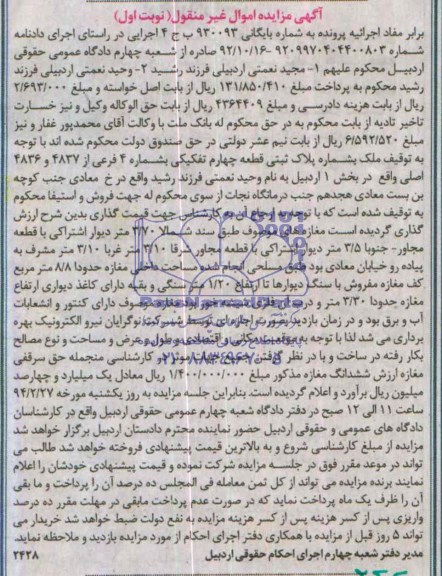 آگهی مزایده اموال غیر منقول( نوبت اول)
برابر مفاد اجرائیه پرونده به شماره بایگانی ۹۳۰۰۹۳ ب ج ۴ اجرایی در راستای اجرای دادنامه
شماره ۹۲۰۹۹۷۰۴۰۴۴۰۰۸۰۳ -۹۲/۱۰/۱۶ صادره از شعبه چهارم دادگاه عمومی حقوقی
اردبیل محکوم علیهم ۱- مجید نعمتی اردبیلی فرزند رشید ۲- وحید نعمتی اردبیلی فرزند
رشید محکوم به پرداخت مبلغ ۱۳۱/۸۵۰/۴۱۰ ریال از بابت اصل خواسته و مبلغ ۲/۶۹۳/۰۰۰
ریال از بابت هزینه دادرسی و مبلغ ۴۳۶۴۴۰۹ ریال از بابت حق الوکاله وکیل و نیز خسارت
تاخیر تادیه از بابت محکوم به در حق محکوم له بانک ملت با وکالت آقای محمدپور غفار و نیز
مبلغ ۶/۵۹۲/۵۲۰ ریال از بابت نیم عشر دولتی در حق صندوق دولت محکوم شده اند با توجه
به توقیف ملک بشماره پلاک ثبتی قطعه چهارم تفکیکی بشماره ۴ فرعی از ۴۸۳۷ و ۴۸۳۶
اصلی واقع در بخش ۱ اردبیل به نام وحید نعمتی فرزند رشید واقع در خ معادی جنب کوچه
بن بست معادی هجدهم جنب درمانگاه نجات از سوی محکوم له جهت فروش و استیفا محکوم
به توقیف شده است که با توجه به ارجاع امر به کارشناس جهت قیمت گذاری بدین شرح ارزش
گذاری گردیده است مغازه موصوف طبق سند شمالا ۳/۷۰ متر دیوار اشتراکی با قطعه
مجاور- جنوبا ۳/۵ متر دیوار اشتراکی با قطعه مجاور شرقا ۳/۱۰ متر غربا ۳/۱۰ متر مشرف به
پیاده رو خیابان معادی بود طبق مسلحی انجام شده مساحت داخلی مغازه حدودا ۸/۸ متر مربع
کف مغازه مفروش با سنگ دیوارها تا ارتفاع ۱/۲۰ متر سنگی و بقیه دارای کاغذ دیواری ارتفاع
مغازه حدودا ۳/۳۰ متر و درب مغازه موصوف دارای کنتور و انشعابات
آب و برق بود و در زمان بازدید بصورت اجاره ای توسط شرکت نوگرایان نیرو الکترونیک بهره
برداری می شد لذا با توجه به موقعیت مکانی و اقتصادی و طول و عرض و مساحت و نوع مصالح
بکار رفته در ساخت و با در نظر گرفتن جمیع جهات موثر در کارشناسی منجمله حق سرقفلی
مغازه ارزش ششدانگ مغازه مذکور مبلغ ۱/۴۰۰/۰۰۰/۰۰۰ ریال معادل یک میلیارد و چهارصد
میلیون ریال برآورد و اعلام گردیده است. بنابراین جلسه مزایده به روز یکشنبه مورخه ۹۴/۲/۲۷
ساعت ۱۱ الی ۱۲ صبح در دفتر دادگاه شعبه چهارم عمومی حقوقی اردبیل واقع در کارشناسان
دادگاه های عمومی و حقوقی اردبیل حضور نماینده محترم دادستان اردبیل برگزار خواهد شد
مزایده از مبلغ کارشناسی شروع و به بالاترین قیمت پیشنهادی فروخته خواهد شد طالب می
تواند در موعد مقرر فوق در جلسه مزایده شرکت نموده و قیمت پیشنهادی خودشان را اعلام
نمایند برنده مزایده می تواند از کل ثمن معامله فی المجلس ده درصد آن را پرداخت و ما بقی
آن را ظرف یک ماه پرداخت نماید که در صورت عدم پرداخت مابقی در مهلت مقرر ده درصد
واریزی پس از کسر هزینه پس از کسر هزینه مزایده به نفع دولت ضبط خواهد شد خریدار می
تواند ۵ روز قبل از مزایده با همکاری دفتر اجرای احکام از مورد مزایده بازدید و ملاحظه نماید.
مدیر دفتر شعبه چهارم اجرای احکام حقوقی اردبیل ۲۴۲۸